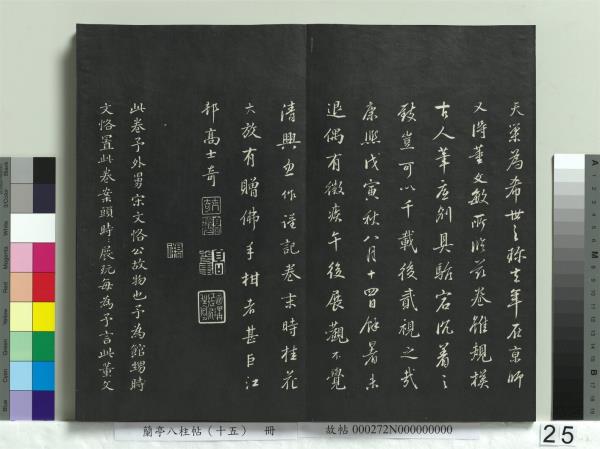 天菓為希世之珍去年在京師
又得董文敏所臨前卷雖規橅
古人筆应別具
致豈可以千載後貳視之哉
康熙戊寅秋八月十四日餘暑未
退偶有微疾午後展觀不覺
清興
作
記卷末時桂花
六放有贈佛手柑者甚巨江
邨高士奇
此卷予外舅宋文恪公故物也予為館甥時
文恪置此卷案頭時時展玩每為予言此董文
蘭亭八柱帖（十五） 冊
故帖 000272N000000000
25